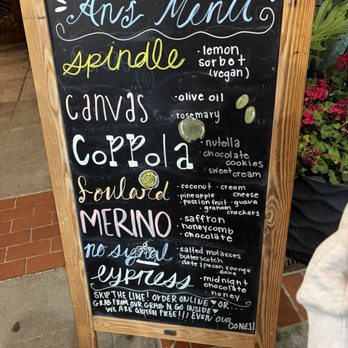 An's Menu
spindle
• lemon
sorbet
(vegan)
canvas
• olive oil
• rosemary
COPPOLA
• nutella
• chocolate
cookies
• sweet cream
foulard
• coconut • cream
pineapple cheese
passionfruit • guava
• graham
crackers
MERINO
• saffron
• honeycomb
• chocolate
no signal
• salted molasses
butterscotch
• date | pecan sponge
cake
cypress
• midnight
chocolate
• honey
SKIP THE LINE! ORDER ONLINE ♥ OR...
GRAB FROM OUR GRAB N GO INSIDE ♥
WE ARE GLUTEN FREE!!! EVEN OUR
CONES!